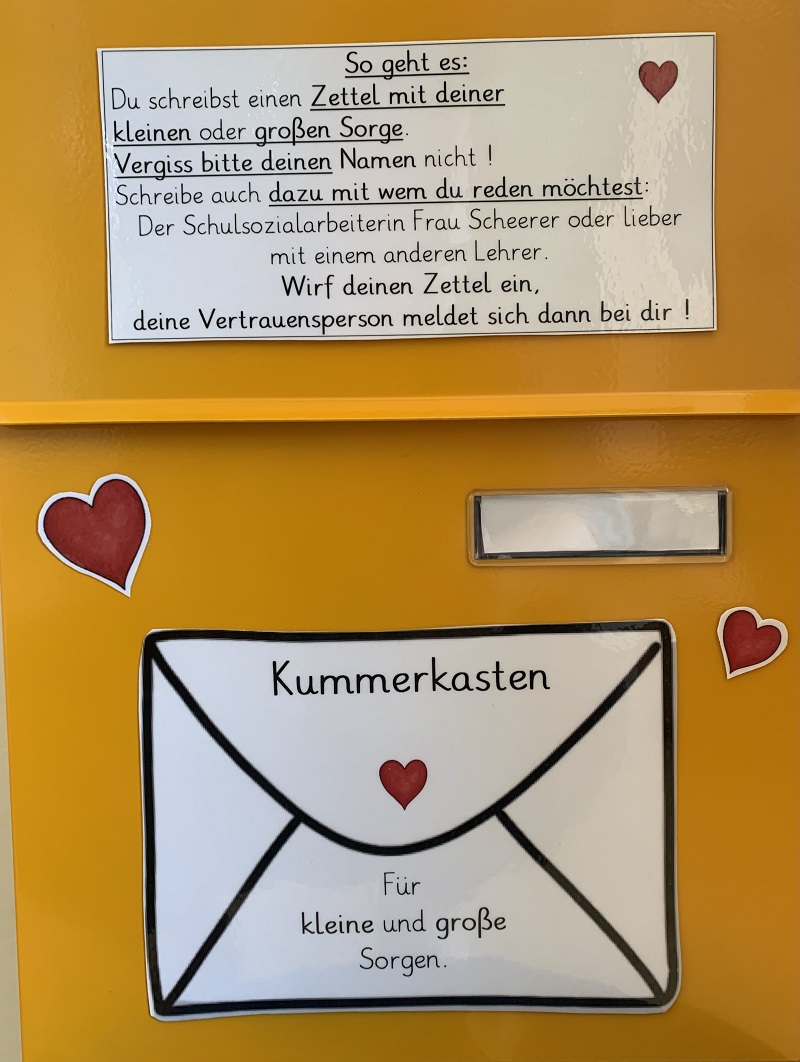 So geht es:
Du schreibst einen Zettel mit deiner
kleinen oder großen Sorge.
Vergiss bitte deinen Namen nicht !
Schreibe auch dazu mit wem du reden möchtest:
Der Schulsozialarbeiterin Frau Scheerer oder lieber
mit einem anderen Lehrer.
Wirf deinen Zettel ein,
deine Vertrauensperson meldet sich dann bei dir !
Kummerkasten
Für
kleine und große
Sorgen.